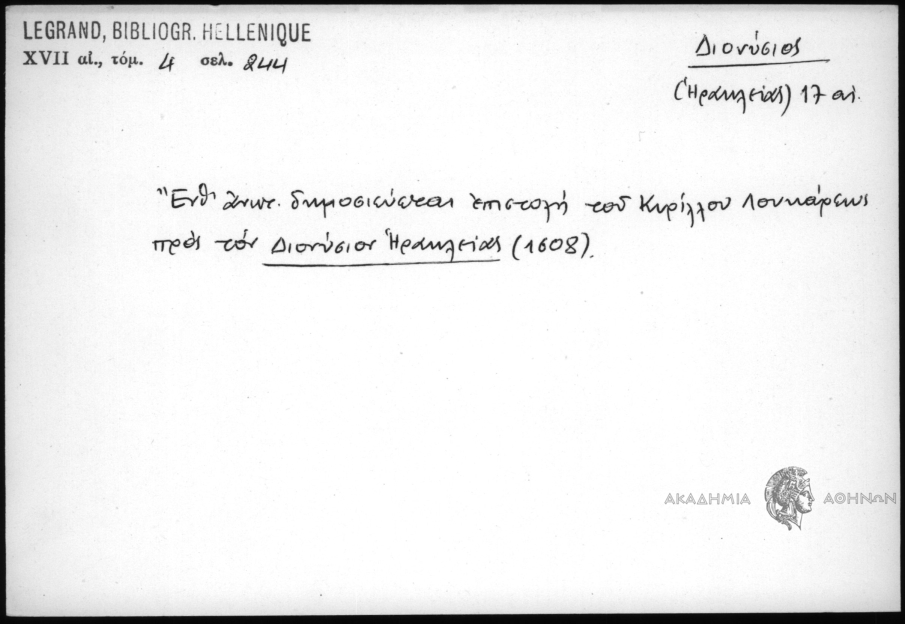 LEGRAND, BIBLIOGR. HELLENIQUE
XVII αἰ., τόμ. 4 σελ. 244
Διονύσιος
(Ἡρακλείας) 17 αἰ.
Ἔνθ' ἀνωτ. δημοσιεύεται ἐπιστολή τοῦ Κυρίλλου Λουκάρεως
πρὸς τόν Διονύσιον Ἡρακλείας (1608).
ΑΚΑΔΗΜΙΑ ΑΘΗΝΩΝ